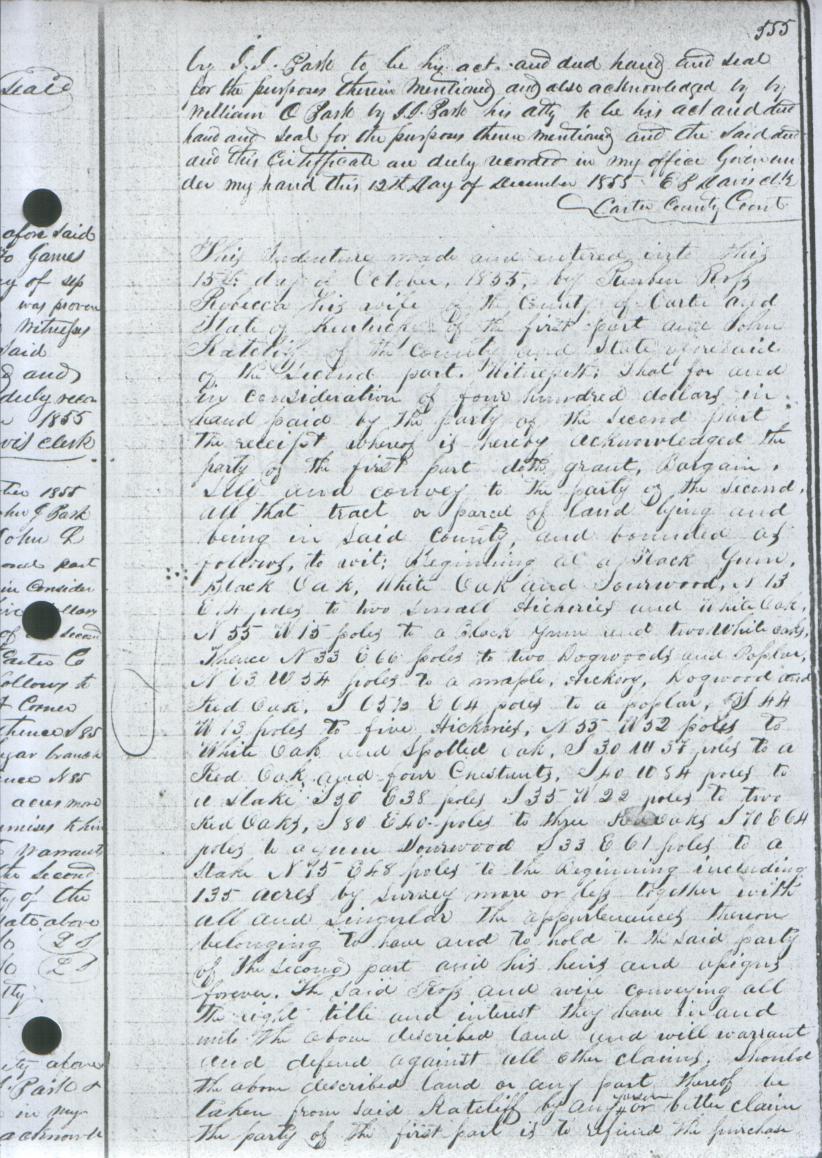 555
by J. J. Park to be his act. and deed hand and seal
for the purposes therein Mentioned and also acknowledged by by
William O Park by J. J. Park his atty to be his act and deed
hand and seal for the purposes therein mentioned and the said deed
and this Certifficate are duly recorded in my office Given un
der my hand this 12th Day of December 1855 E S Davis clk
Carter County Court
This Indenture made and entered into this
15th day of October, 1855, by Reuben Ross
Rebecca his wife of the County of Carter and
State of Kentucky of the first part and John
Ratcliff of the County and State aforesaid
of the Second part. Witnesseth: That for and
in consideration of four hundred dollars in
hand paid by the party of the second part
the receipt whereof is hereby acknowledged the
party of the first part doth grant, Bargain,
Sell and convey to the party of the second,
all that tract or parcel of land lying and
being in said County, and bounded as
follows, to wit: Beginning at a Black Gum,
Black Oak, White Oak and Sourwood, N 13
E 4 poles to two small Hickories and White Oak,
N 55 W 15 poles to a Black Gum and two White oaks,
Thence N 33 E 66 poles to two Dogwoods and Poplar,
N 63 W 54 poles to a maple, Hickory, Dogwood and
Red Oak, S 65½ E 64 poles to a poplar, S 44
W 13 poles to five Hickories, N 55 W 32 poles to
White Oak and Spotted oak, S 30 W 57 poles to a
Red Oak and four Chestnuts, S 40 W 84 poles to
a Stake S 50 E 38 poles S 35 W 22 poles to two
Red Oaks, S 80 E 40 poles to three Oaks S 70 E 64
poles to a gum Sourwood S 33 E 61 poles to a
Stake N 75 E 48 poles to the Beginning including
135 acres by survey more or less together with
all and singular the appurtenances thereon
belonging to have and to hold to the said party
of the second part and his heirs and assigns
forever. The said Ross and wife conveying all
the right title and interest they have in and
unto the above described land and will warrant
and defend against all other claims. Should
the above described land or any part thereof be
taken from said Ratcliff by any person or better claim
the party of the first part is to refund the purchase
Seal
afore said
to James
y of sep
was proven
Witness
said
and
duly recor
1855
vis clerk
ber 1855
John J Park
John L
ond part
in Consider
five dollars
of second
Carter C
follows to
Corner
thence S 85
gar branch
ence N 85
acres more
mises to him
Warrant
the second
ty of the
date above
L S
L S
tty
ity above
Park &
in my
acknowle